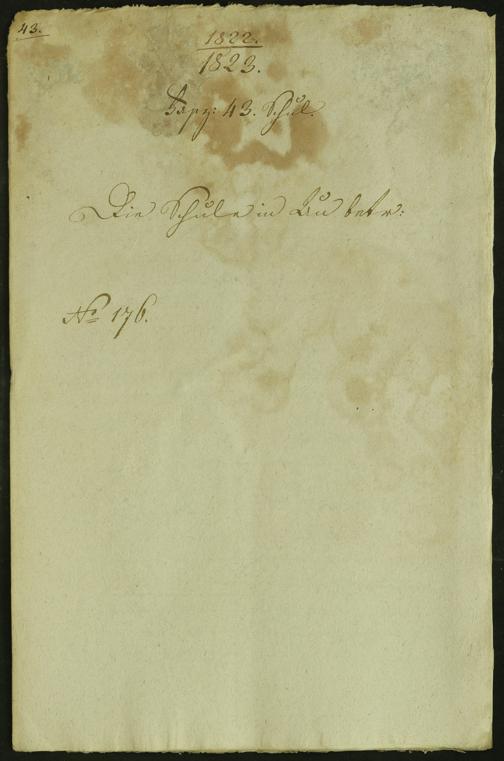 43.
1822.
1823.
43. Schul.
Die Schule in Au betr:
No 176.